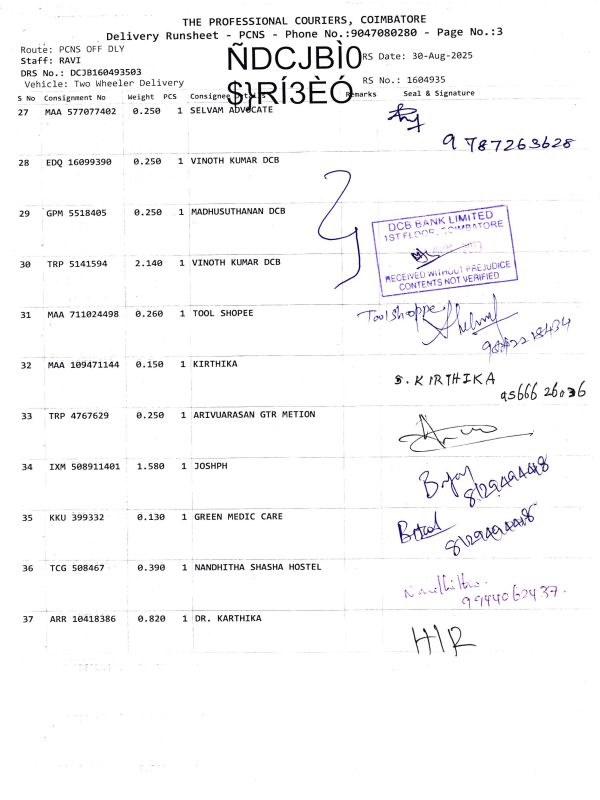 THE PROFESSIONAL COURIERS, COIMBATORE
Delivery Runsheet - PCNS - Phone No.:9047080280 - Page No.:3
Route: PCNS OFF DLY
Staff: RAVI
ÑDCJBÌ0
RS Date: 30-Aug-2025
DRS No.: DCJB160493503
Vehicle: Two Wheeler Delivery
$}RÍ3ÈÓ
RS No.: 1604935
S No Consignment No Weight PCS Consignee Details Remarks Seal & Signature
27 MAA 577077402 0.250 1 SELVAM ADVOCATE
9787263628
28 EDQ 16099390 0.250 1 VINOTH KUMAR DCB
29 GPM 5518405 0.250 1 MADHUSUTHANAN DCB
DCB BANK LIMITED
1ST FLOOR, COIMBATORE
RECEIVED WITHOUT PREJUDICE
CONTENTS NOT VERIFIED
30 TRP 5141594 2.140 1 VINOTH KUMAR DCB
31 MAA 711024498 0.260 1 TOOL SHOPEE Toolshoppe
32 MAA 109471144 0.150 1 KIRTHIKA S. KIRTHIKA
33 TRP 4767629 0.250 1 ARIVUARASAN GTR METION
34 IXM 508911401 1.580 1 JOSHPH
35 KKU 399332 0.130 1 GREEN MEDIC CARE
36 TCG 508467 0.390 1 NANDHITHA SHASHA HOSTEL
9944062437.
37 ARR 10418386 0.820 1 DR. KARTHIKA H/R